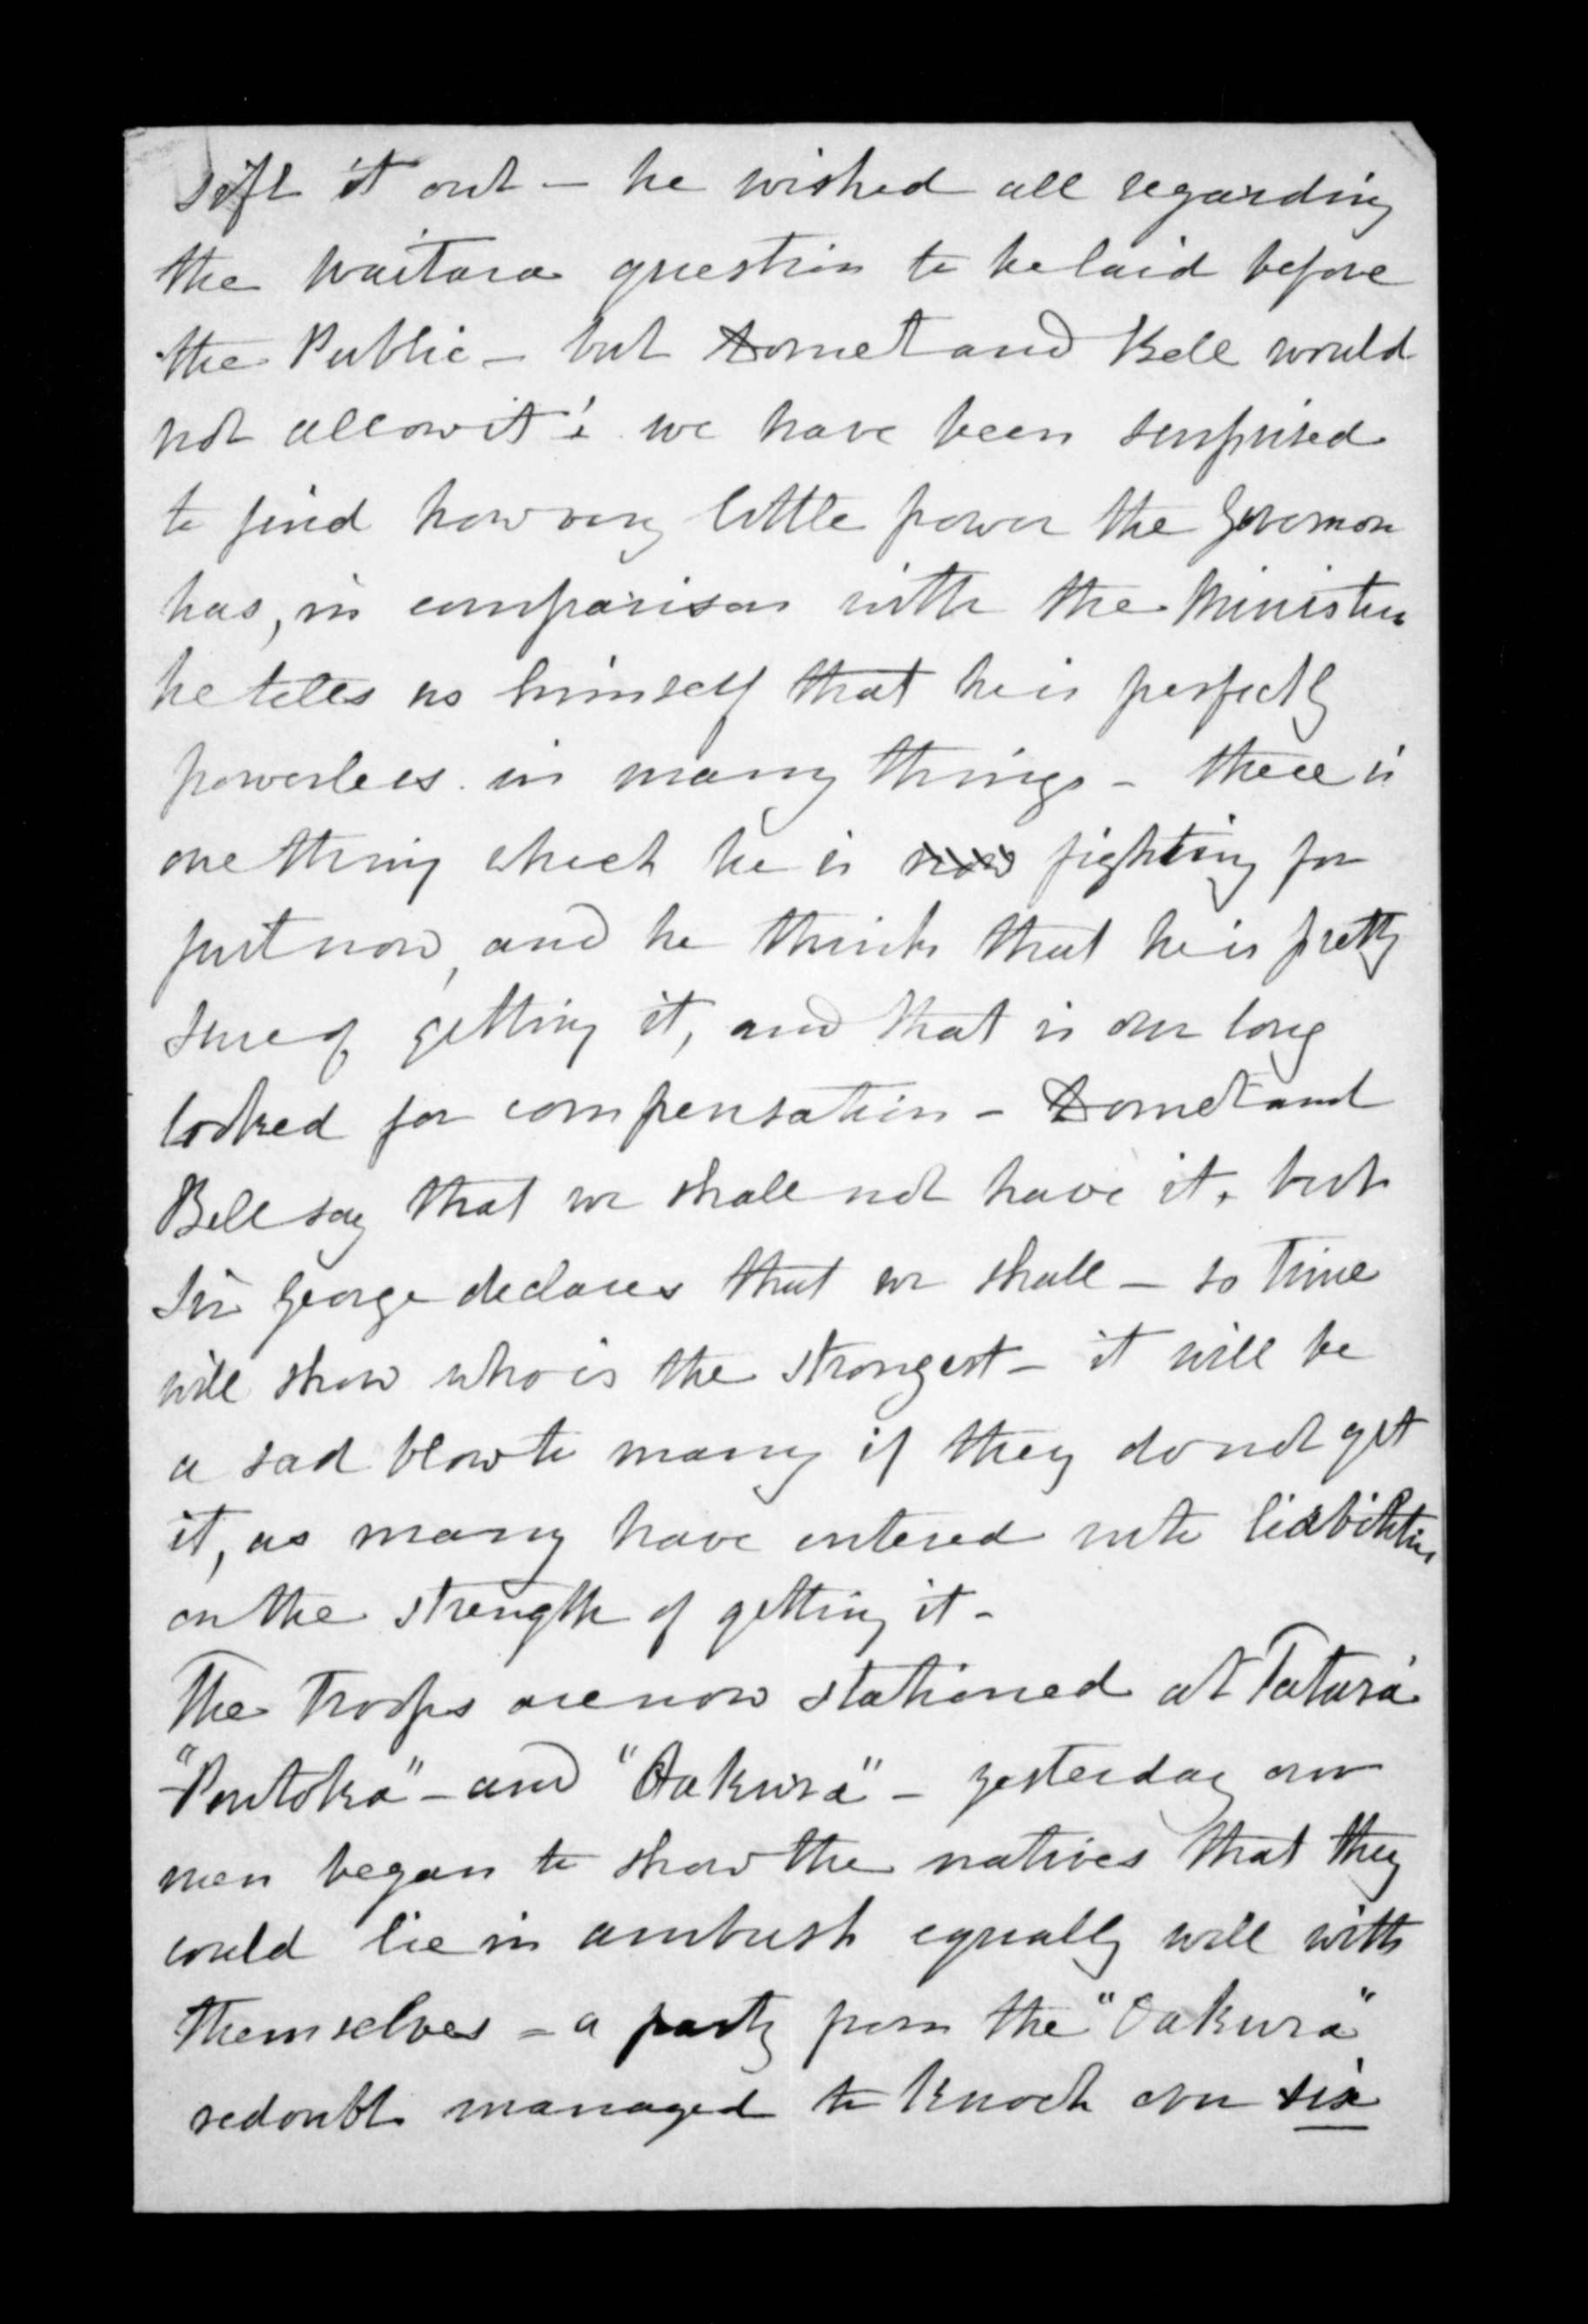 sift it out — he wished all regarding
the Waitara question to be laid before
the Public — but Domet and Bell would
not allow it! we have been surprised
to find how very little power the Governor
has, in comparison with the Ministers
he tells us himself that he is perfectly
powerless in many things — there is
one thing which he is now fighting for
just now, and he thinks that he is pretty
sure of getting it, and that is our long
looked for compensation — Domet and
Bell say that we shall not have it, but
Sir George declares that we shall — so time
will show who is the strongest — it will be
a sad blow to many if they do not get
it, as many have entered into liabilities
on the strength of getting it —
The Troops are now stationed at Tatara
"Poutoko" — and "Oakura" — yesterday our
men began to show the natives that they
could lie in ambush equally well with
themselves — a party from the "Oakura"
redoubt managed to knock over six